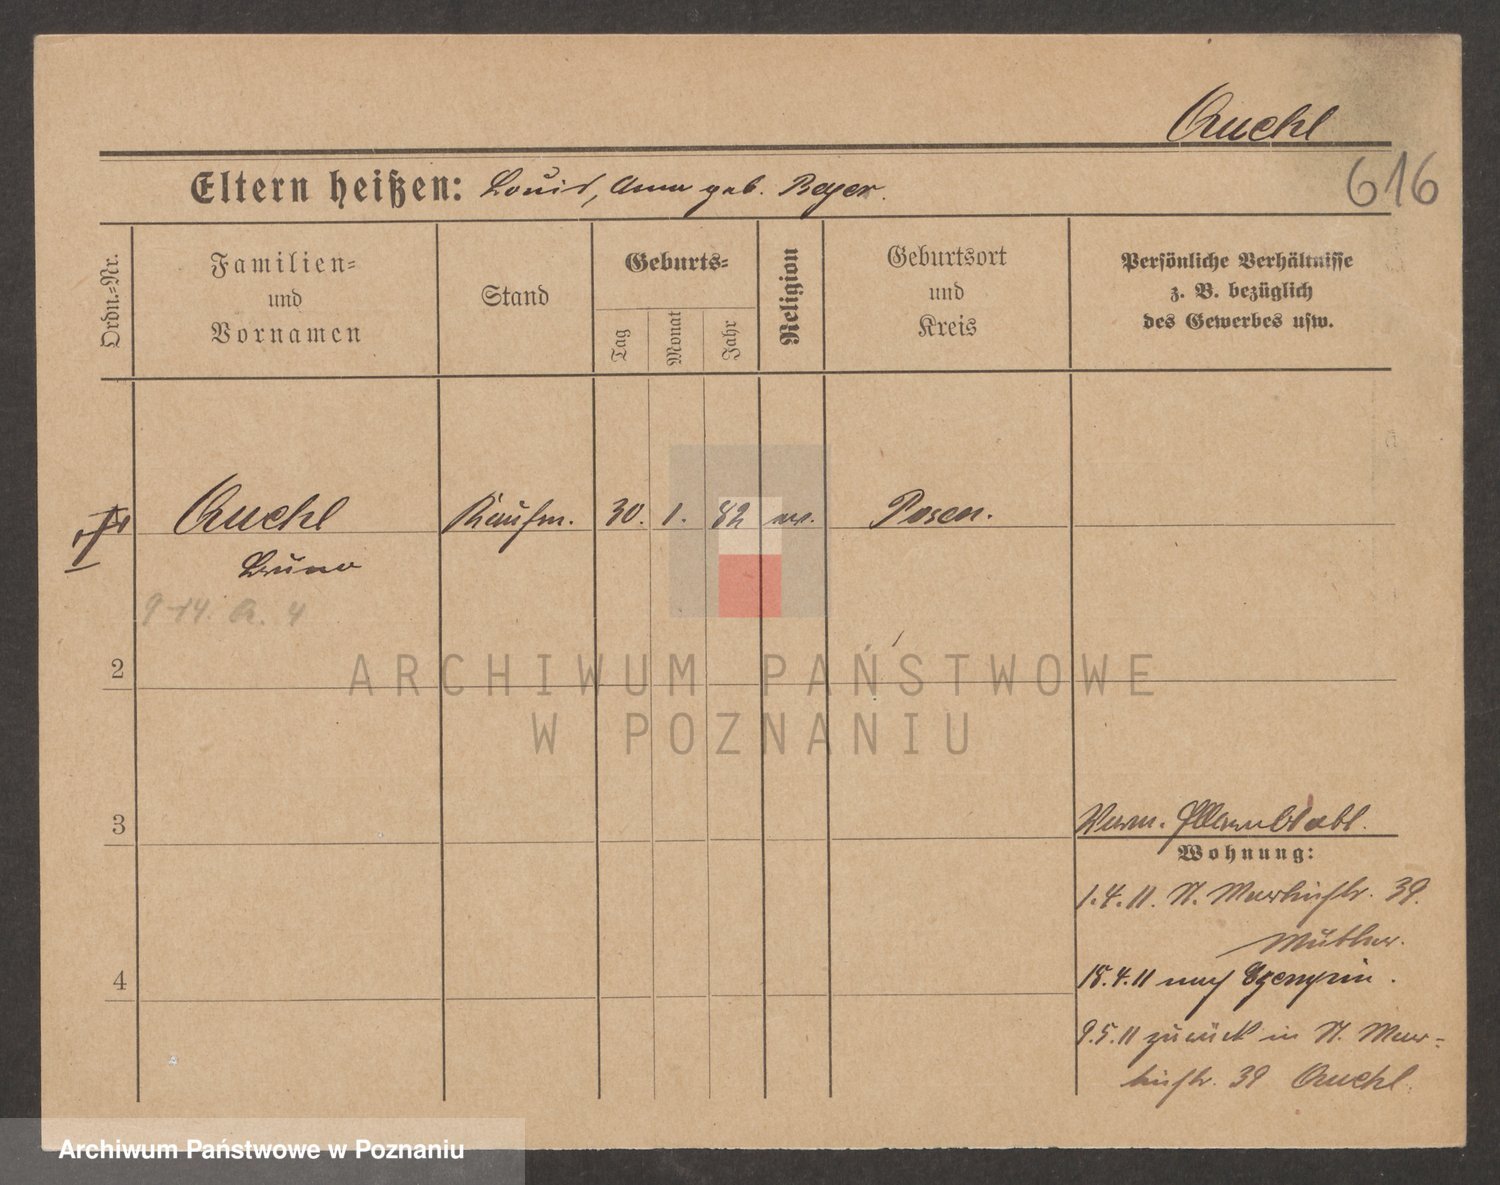 Auehl
616
Eltern heißen: Louis, Anna geb. Beyer.
Ordn.-Nr.
Familien-
und
Vornamen
Stand
Geburts-
Tag
Monat
Jahr
Religion
Geburtsort
und
Kreis
Persönliche Verhältnisse
z. B. bezüglich
des Gewerbes usw.
Auehl Kaufm. 30. 1. 82 Posen.
Bruno
9-14. A. 4
2
3
4
Wohnung:
1.4.11. St. Martinstr. 39.
Mutter.
18.4.11 nach Czempin.
9.5.11 zurück in St. Mar-
tinstr. 39 Auehl.
ARCHIWUM PAŃSTWOWE
W POZNANIU
Archiwum Państwowe w Poznaniu